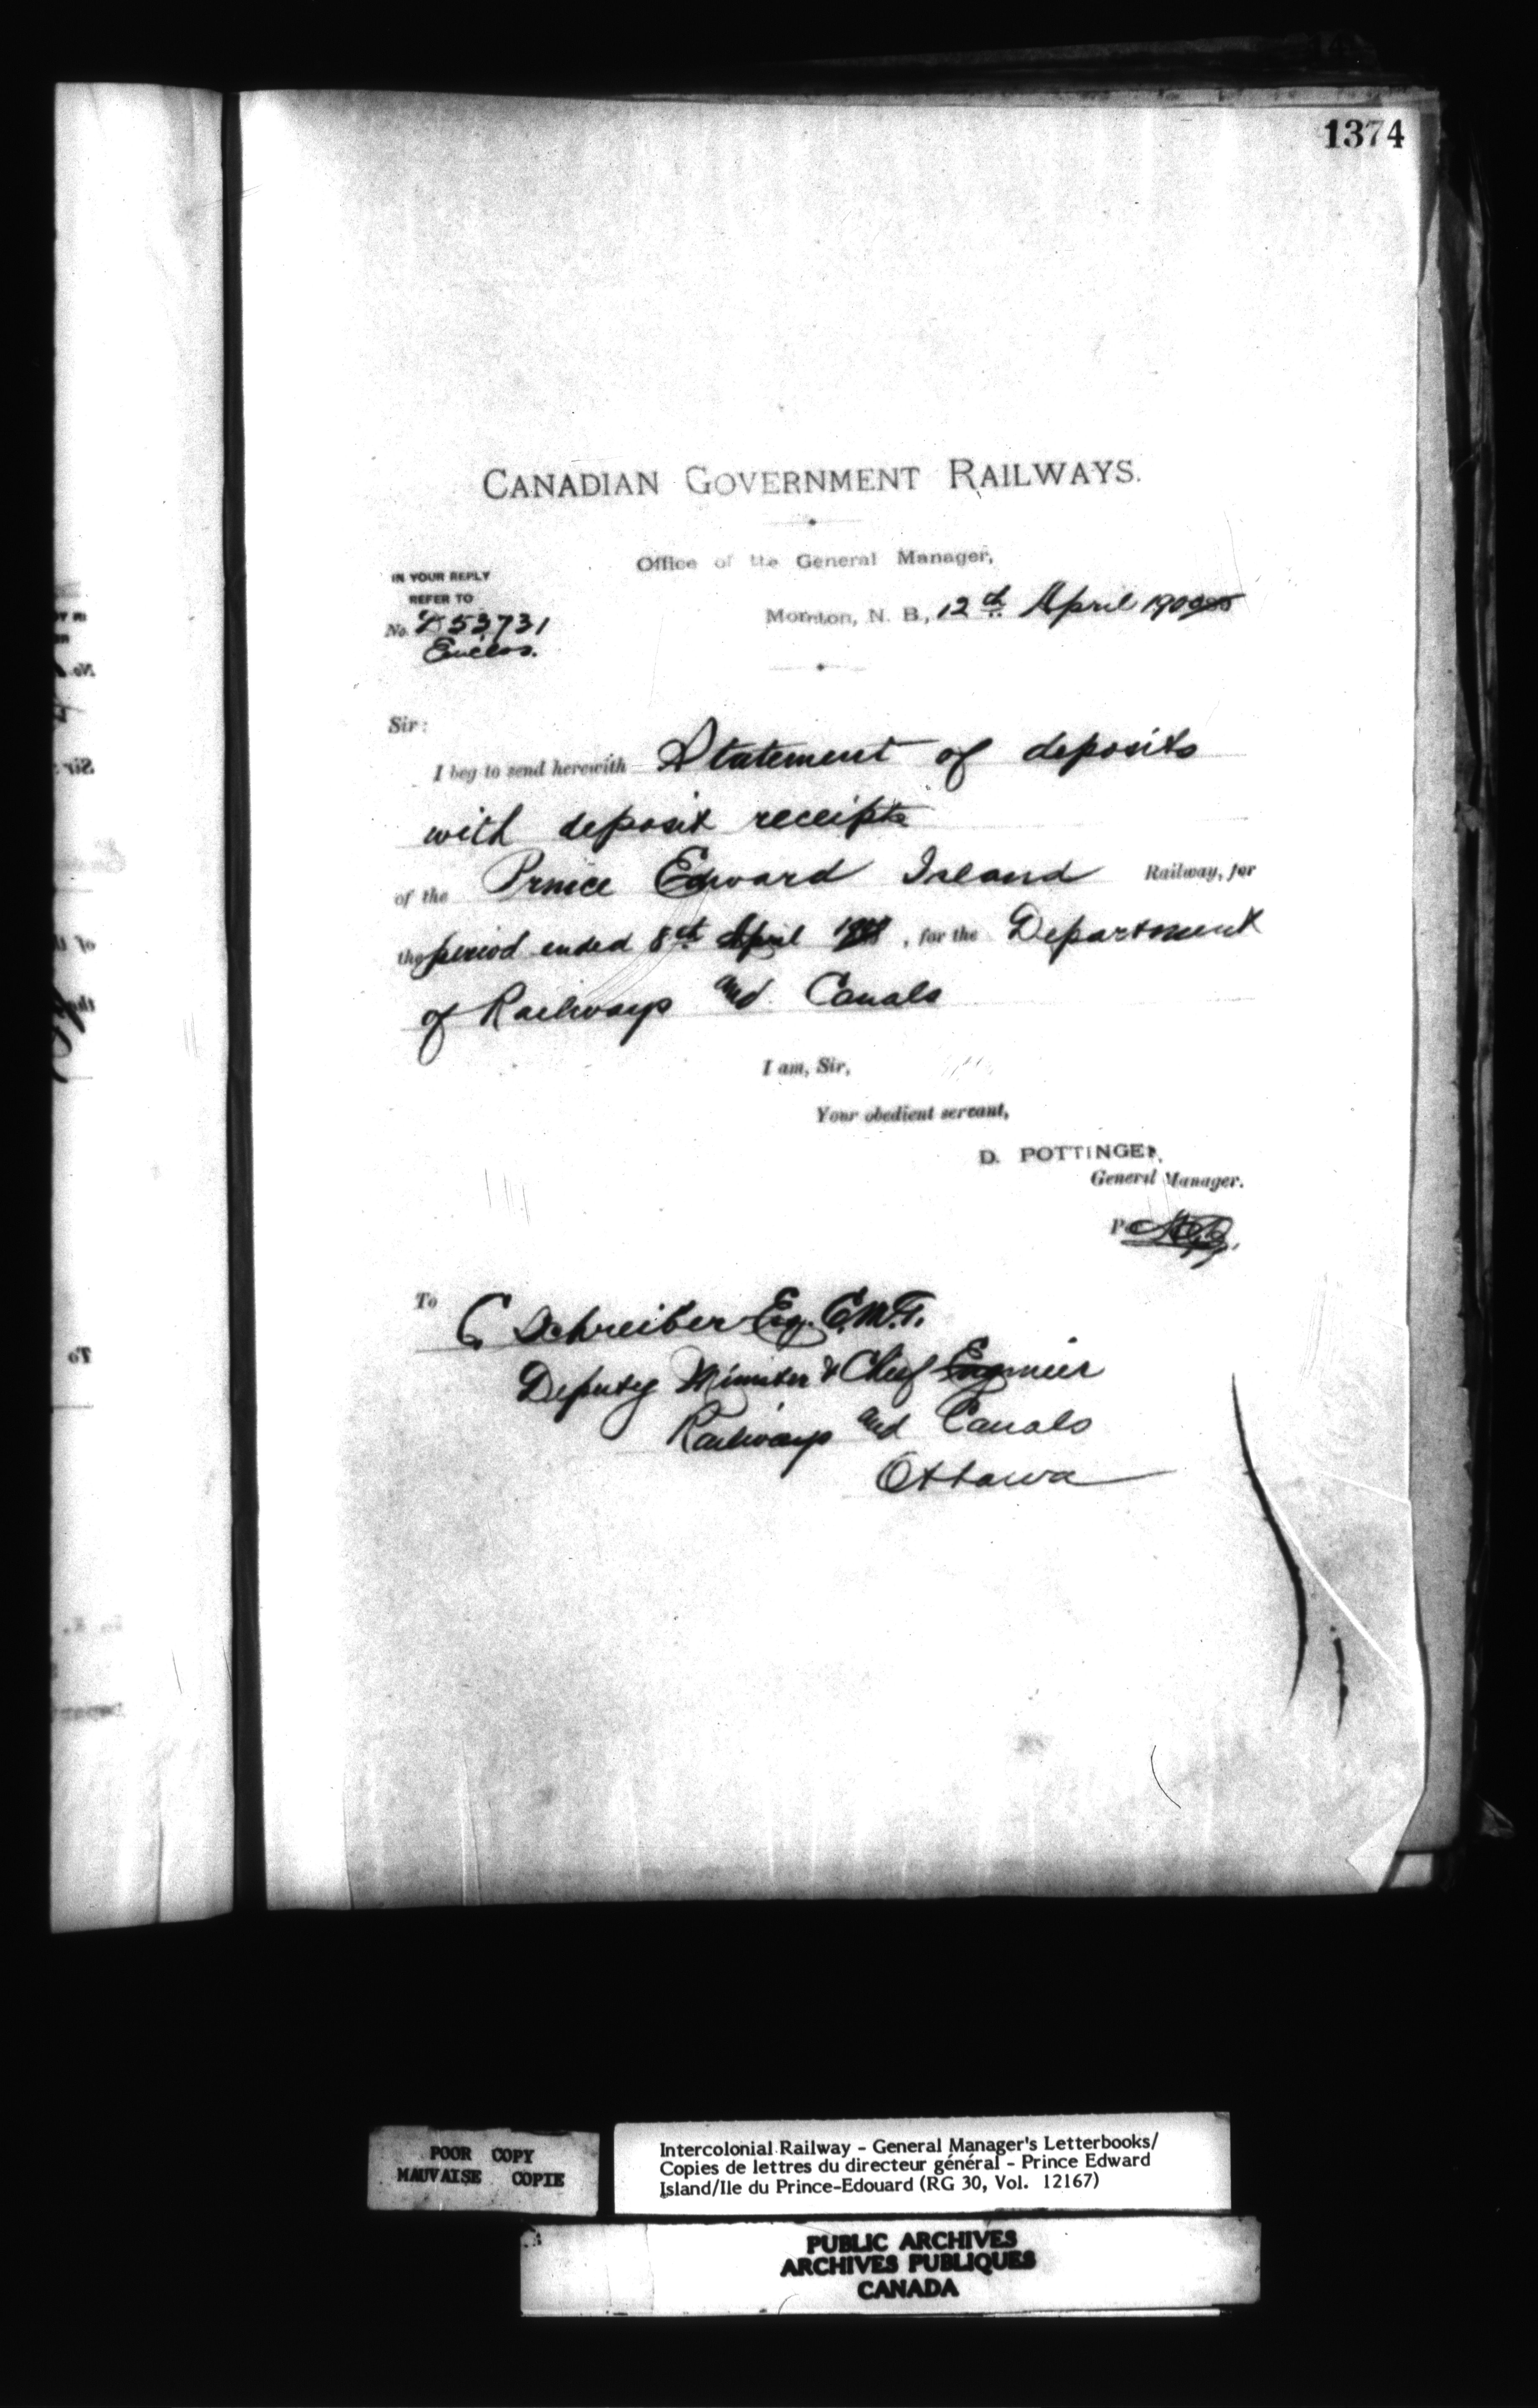 1374
CANADIAN GOVERNMENT RAILWAYS.
Office of the General Manager,
IN YOUR REPLY
REFER TO
No. 53731
Enclos.
Moncton, N. B., 12th April 190
Sir:
I beg to send herewith Statement of deposits
with deposit receipts
of the Prince Edward Island Railway, for
the period ended 8th April, for the Department
of Railways and Canals
I am, Sir,
Your obedient servant,
D. POTTINGER,
General Manager.
Per
To
C. Schreiber Esq. C.M.G.
Deputy Minister & Chief Engineer
Railways and Canals
Ottawa
POOR COPY
MAUVAISE COPIE
Intercolonial Railway - General Manager's Letterbooks/
Copies de lettres du directeur général - Prince Edward
Island/Ile du Prince-Edouard (RG 30, Vol. 12167)
PUBLIC ARCHIVES
ARCHIVES PUBLIQUES
CANADA